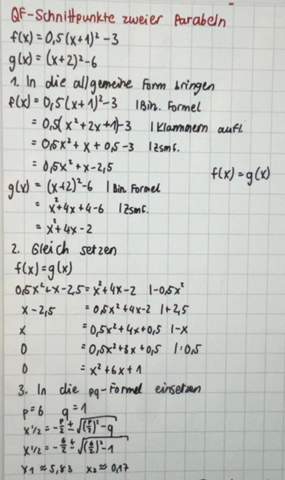 QF-Schnittpunkte zweier Parabeln
f(x) = 0,5(x+1)²-3
g(x) = (x+2)²-6
1. In die allgemeine Form bringen
f(x) = 0,5(x+1)²-3 | Bin. Formel
= 0,5(x²+2x+1)-3 | Klammern aufl.
= 0,5x² + x + 0,5-3 | zsmf.
= 0,5x² + x - 2,5
f(x) = g(x)
g(x) = (x+2)²-6 | Bin. Formel
= x²+4x+4-6 | zsmf.
= x²+4x-2
2. Gleich setzen
f(x) = g(x)
0,5x²+x-2,5 = x²+4x-2 |-0,5x²
x-2,5 = 0,5x²+4x-2 |+2,5
x = 0,5x²+4x+0,5 |-x
0 = 0,5x²+3x+0,5 |:0,5
0 = x²+6x+1
3. In die pq-Formel einsetzen
p=6 q=1
x1/2 = -p/2 ± √((p/2)²-q)
x1/2 = -6/2 ± √((6/2)²-1)
x1 ≈ 5,83 x2 ≈ 0,17